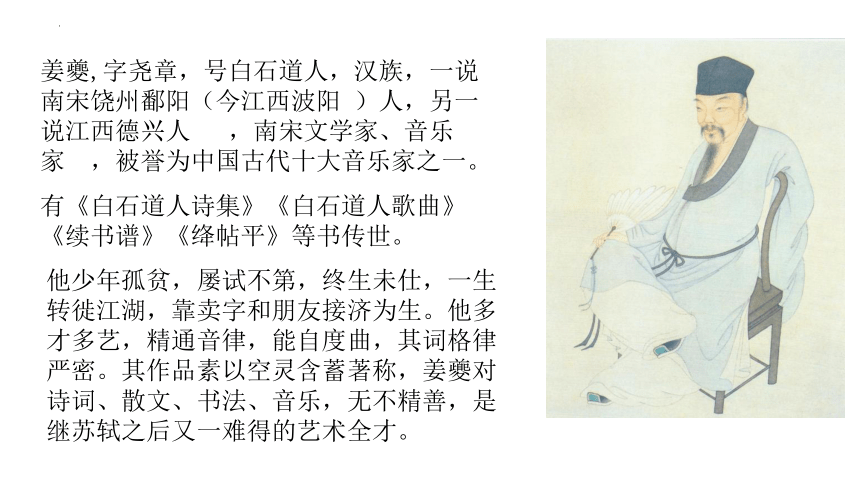 姜夔,字尧章，号白石道人，汉族，一说
南宋饶州鄱阳（今江西波阳 ）人，另一
说江西德兴人 ，南宋文学家、音乐
家 ，被誉为中国古代十大音乐家之一。
有《白石道人诗集》《白石道人歌曲》
《续书谱》《绛帖平》等书传世。
他少年孤贫，屡试不第，终生未仕，一生
转徙江湖，靠卖字和朋友接济为生。他多
才多艺，精通音律，能自度曲，其词格律
严密。其作品素以空灵含蓄著称，姜夔对
诗词、散文、书法、音乐，无不精善，是
继苏轼之后又一难得的艺术全才。